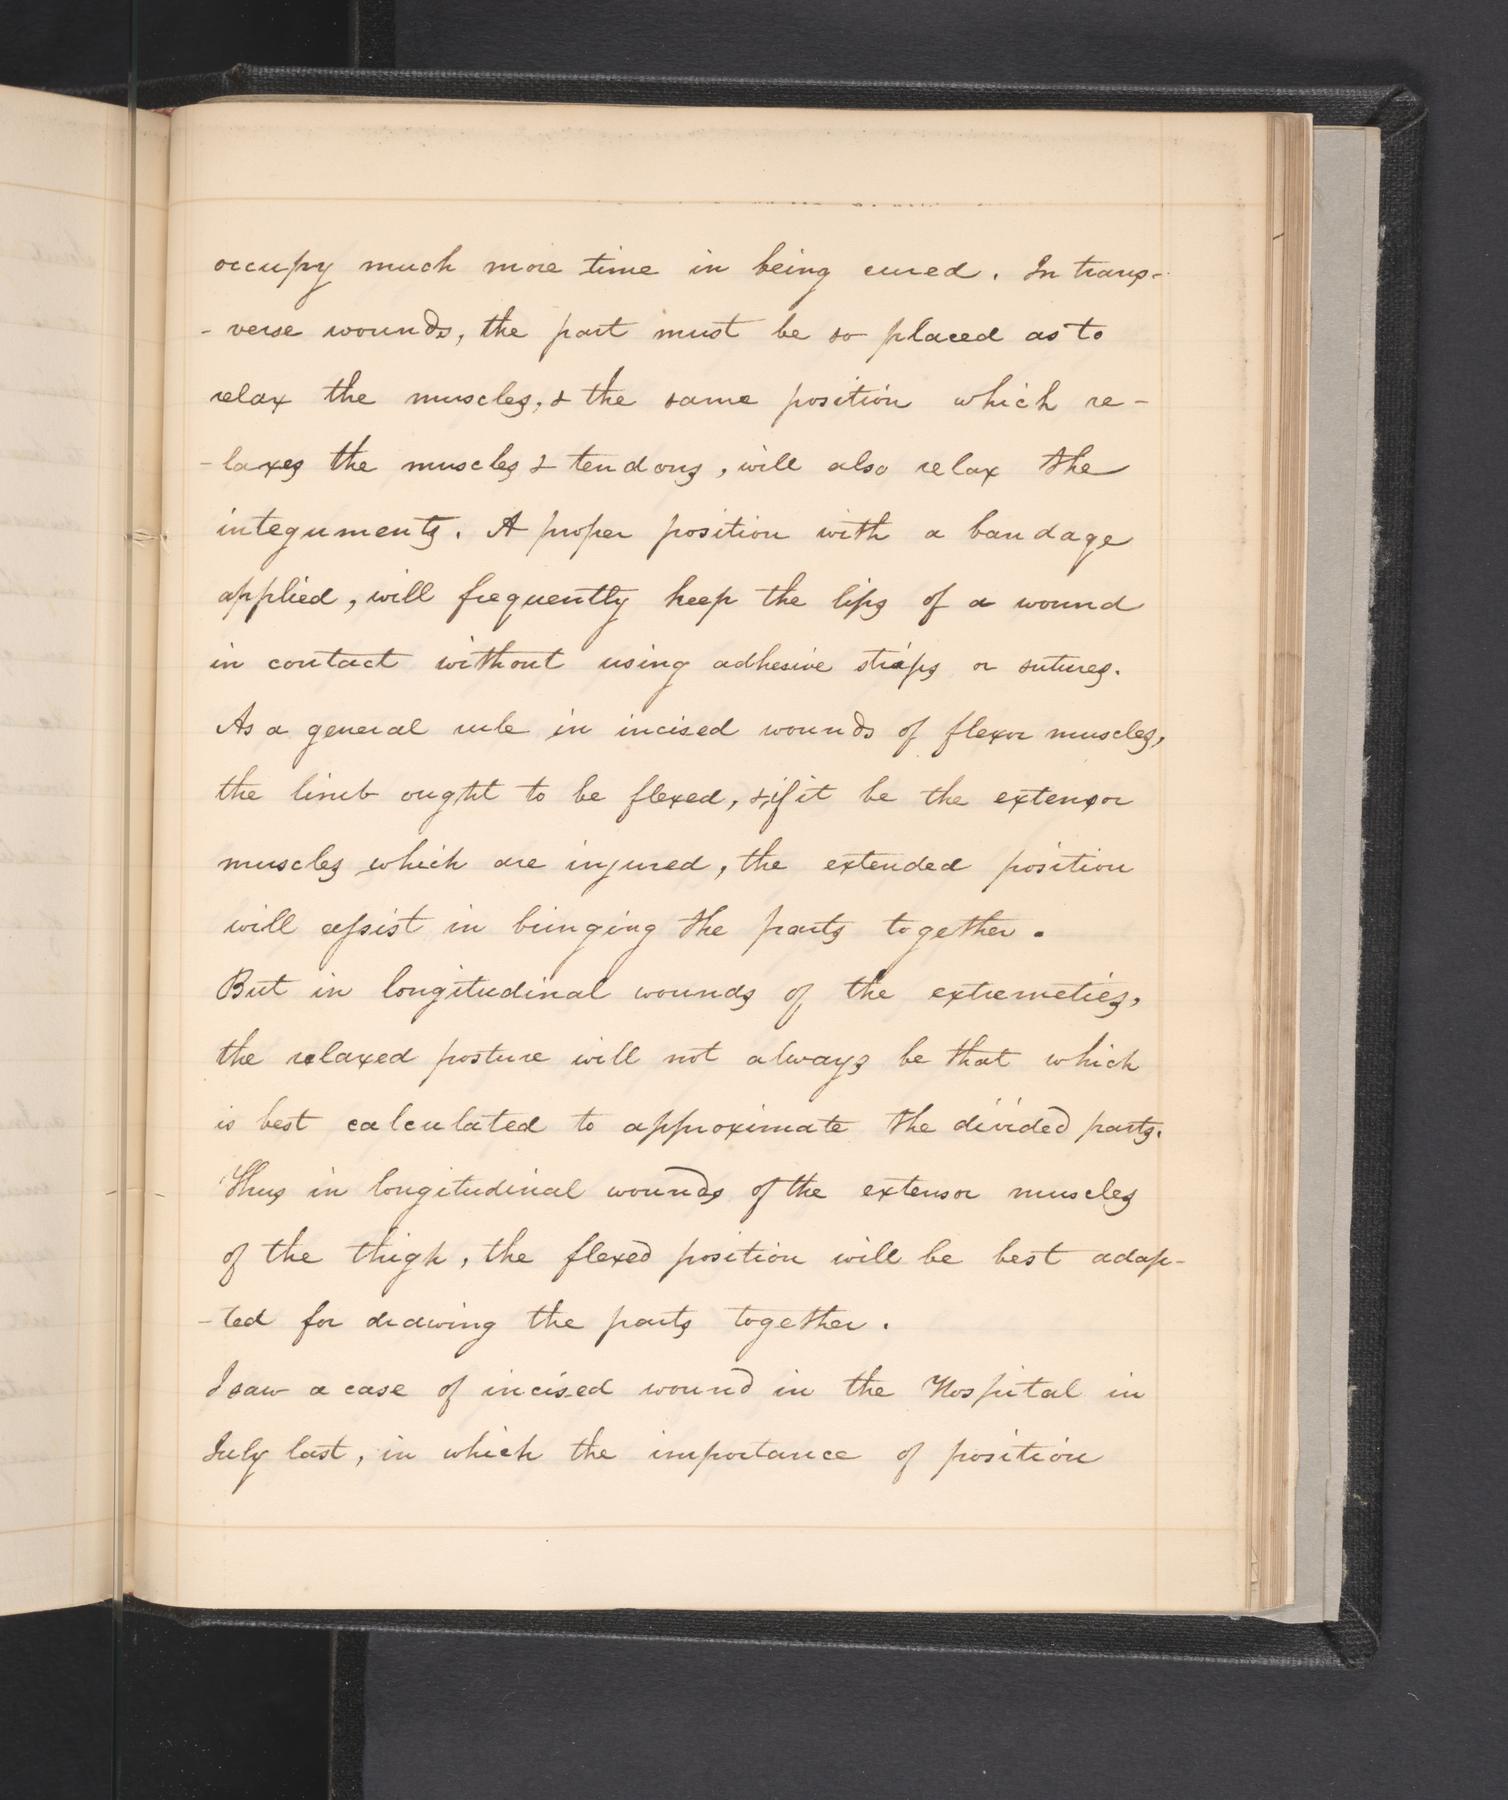 occupy much more time in being cured. In trans-
- verse wounds, the part must be so placed as to
relax the muscles, & the same position which re-
- laxes the muscles & tendons, will also relax the
integuments. A proper position with a bandage
applied, will frequently keep the lips of a wound
in contact without using adhesive straps or sutures.
As a general rule in incised wounds of flexor muscles,
the limb ought to be flexed, & if it be the extensor
muscles which are injured, the extended position
will assist in bringing the parts together.
But in longitudinal wounds of the extremeties,
the relaxed posture will not always be that which
is best calculated to approximate the divided parts.
Thus in longitudinal wounds of the extensor muscles
of the thigh, the flexed position will be best adap-
- ted for drawing the parts together.
I saw a case of incised wound in the Hospital in
July last, in which the importance of position